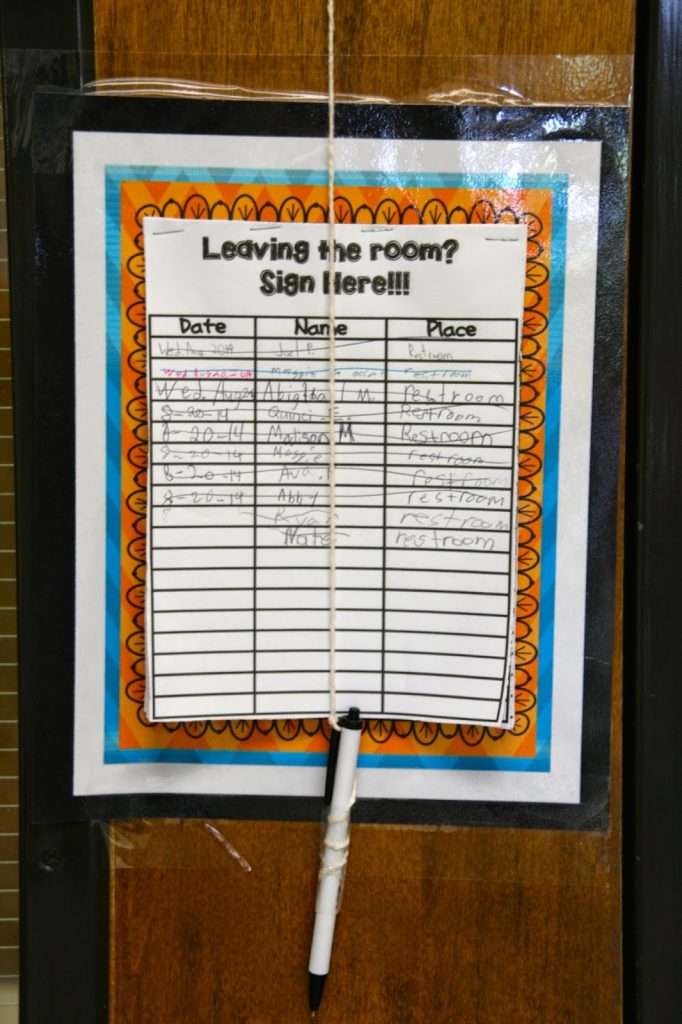 Leaving the room?
Sign Here!!!
Date Name Place
Wed. 2014 Joel P. Restroom
Wed Aug 20, 2014 Maggie restroom
Wed. Aug 20 Abigail M. restroom
8-20-14 Quinci Restroom
8-20-14 Madison M Restroom
8-20-14 Maggie restroom
8-20-14 Ava. restroom
8-20-14 Abby restroom
Ryan restroom
Nate restroom